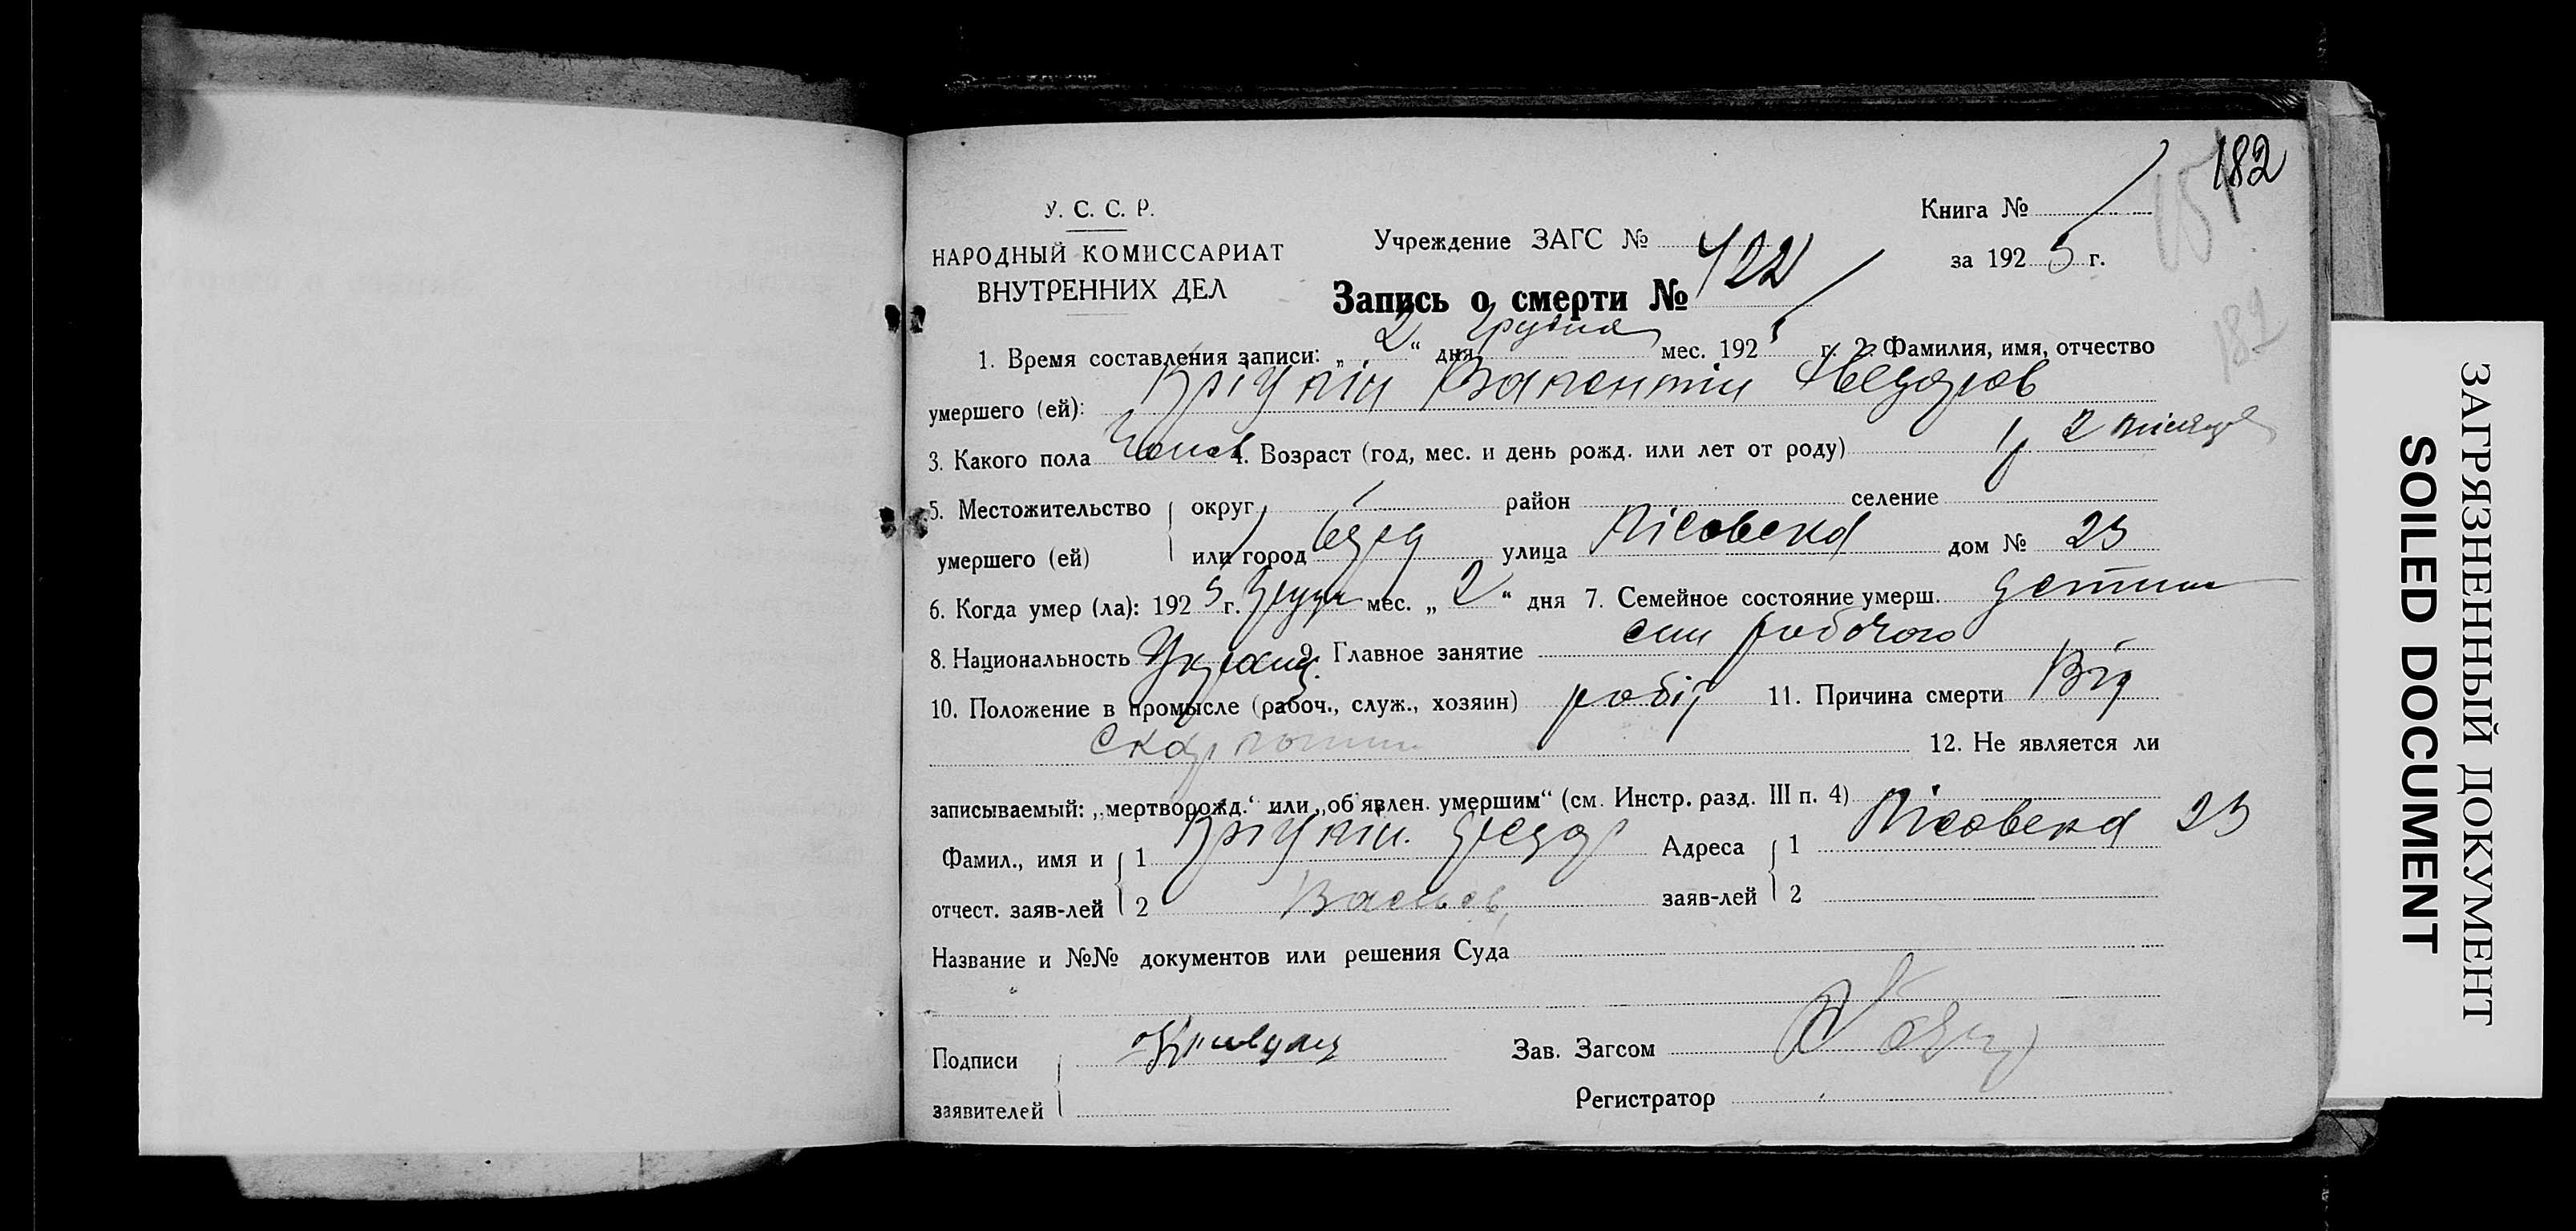 182
У. С. С. Р.
НАРОДНЫЙ КОМИССАРИАТ
ВНУТРЕННИХ ДЕЛ
Учреждение ЗАГС №
Книга №
за 1925 г.
Запись о смерти № 422
182
1. Время составления записи: „2“ дня Грудня мес. 1925 г. 2. Фамилия, имя, отчество
умершего (ей): Валентин
3. Какого пола Чолов 4. Возраст (год, мес. и день рожд. или лет от роду) 2 місяця
5. Местожительство округ район селение
умершего (ей) или город улица Лісовская дом № 23
6. Когда умер (ла): 1925 г. Грудн мес. „2“ дня 7. Семейное состояние умерш. детина
8. Национальность Украин. 9. Главное занятие син робочого
10. Положение в промысле (рабоч., служ., хозяин) робіт 11. Причина смерти Від
скарлатини 12. Не является ли
записываемый: „мертворожд.“ или „об'явлен. умершим“ (см. Инстр. разд. III п. 4)
Фамил., имя и 1 Адреса 1 23
отчест. заяв-лей 2 Васильев. заяв-лей 2
Название и №№ документов или решения Суда
Подписи Зав. Загсом
заявителей Регистратор
ЗАГРЯЗНЕННЫЙ ДОКУМЕНТ
SOILED DOCUMENT